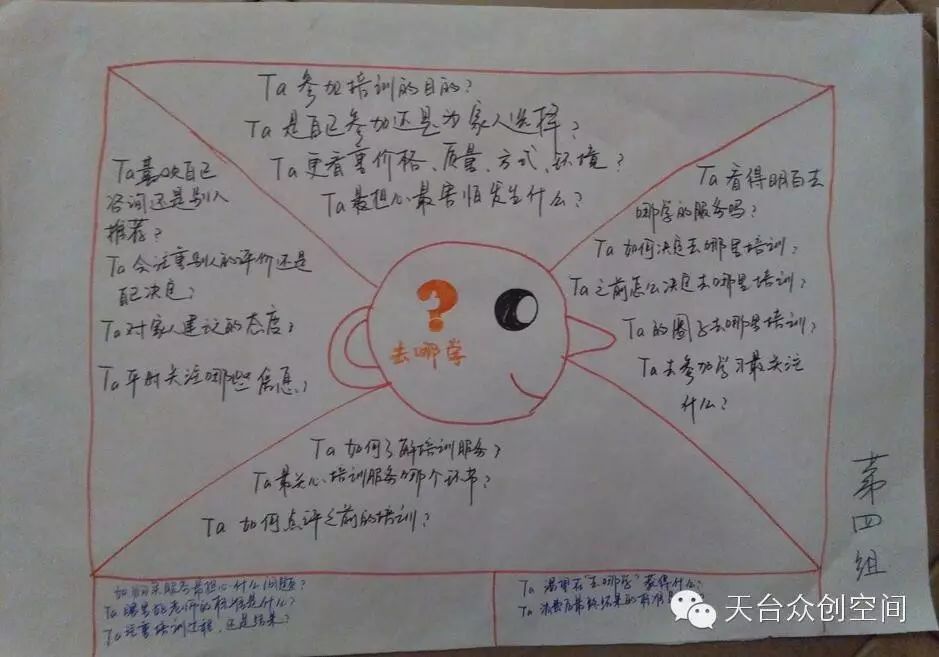 Ta 参加培训的目的?
Ta 是自己参加还是为家人选择?
Ta 更看重价格、质量、方式、环境?
Ta最担心最害怕发生什么?
Ta喜欢自己
咨询还是别人
推荐?
Ta会注重别人的评价还是
自己决定?
Ta对家人建议的态度?
Ta平时关注哪些信息?
Ta 看得明白去
哪学的服务吗?
Ta 如何决定去哪里培训?
Ta之前怎么决定去哪里培训?
Ta的圈子去哪里培训?
Ta 去参加学习最关注
什么?
?
去哪学
Ta 如何了解培训服务?
Ta最关心培训服务哪个环节?
Ta 如何点评之前的培训?
第四组
服务最担心什么问题?
Ta 老师的标准是什么?
Ta注重培训过程,还是结果?
Ta 渴望在"去哪学"获得什么?
Ta 消费后最终效果的标准
天台众创空间